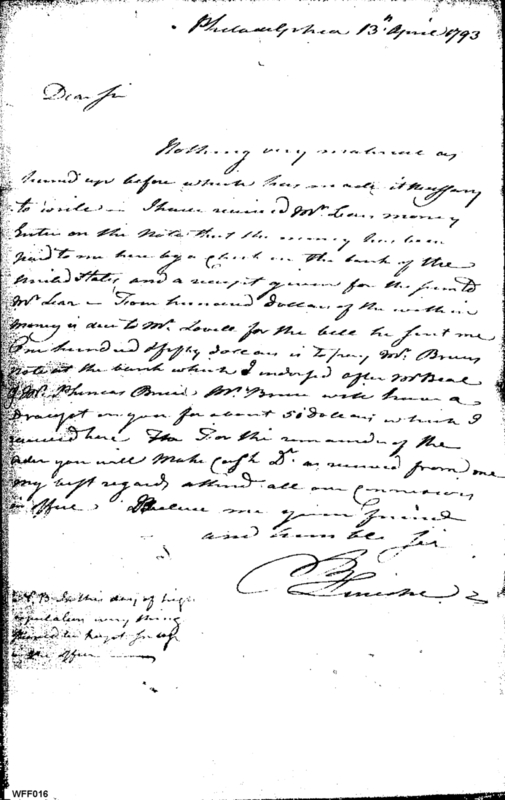 Philadelphia 13th April 1793
Dear Sir
Nothing very material as
turned up before which has made it necessary
to write – I have received Mr. Lears money
Enter on the Note that the money has been
paid to me here by a Check on the bank of the
United States, and a receipt given for the same to
Mr Lear – Four hundred Dollars of the within
money is due to Mr. Lovell for the bill he sent me
One hundred & fifty dollars is to pay Mr. Bruces
note at the bank which I endorsed after Mr Beal
& Mr. Phineas Bruce Mr. Bruce will have a
Draught on you for about 50 dollars which I
received here. For the remainder of the
order you will make Cash Dr. as received from me
my best regards attend all our connexions
in office. Believe me your friend
and humble Ser
B Lincoln
N. B. In this day of high
speculation every thing
should be kept
in the office
WFF016